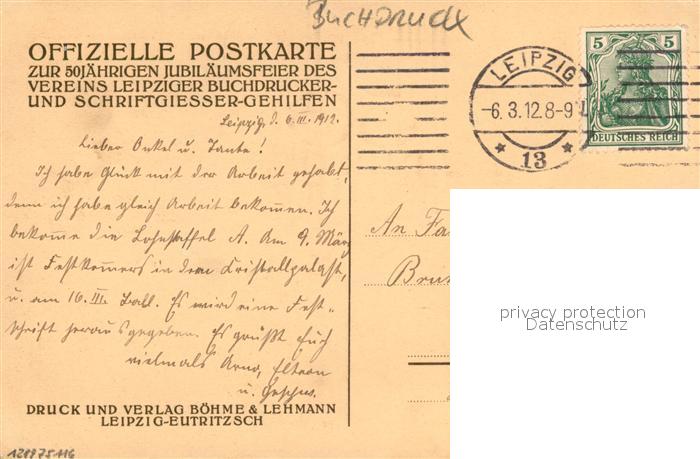 Buchdruck
OFFIZIELLE POSTKARTE
ZUR 50JÄHRIGEN JUBILÄUMSFEIER DES
VEREINS LEIPZIGER BUCHDRUCKER-
UND SCHRIFTGIESSER-GEHILFEN
Leipzig, d. 6. III. 1912.
Lieber Onkel u. Tante!
Ich habe Glück mit der Arbeit gehabt,
denn ich habe gleich Arbeit bekommen. Ich
bekomme die Lohnstaffel A. Am 9. März
ist Festkommers in dem Cristallpalast,
u. am 16. III. Ball. Es wird eine Fest-
schrift herausgegeben. Es grüßt Euch
vielmals Arno, Eltern
u. Geschw.
DRUCK UND VERLAG BÖHME & LEHMANN
LEIPZIG-EUTRITZSCH
128975116
LEIPZIG
-6.3.12.8-9
* 13 *
5 5
DEUTSCHES REICH
An Fa
Bru
privacy protection
Datenschutz